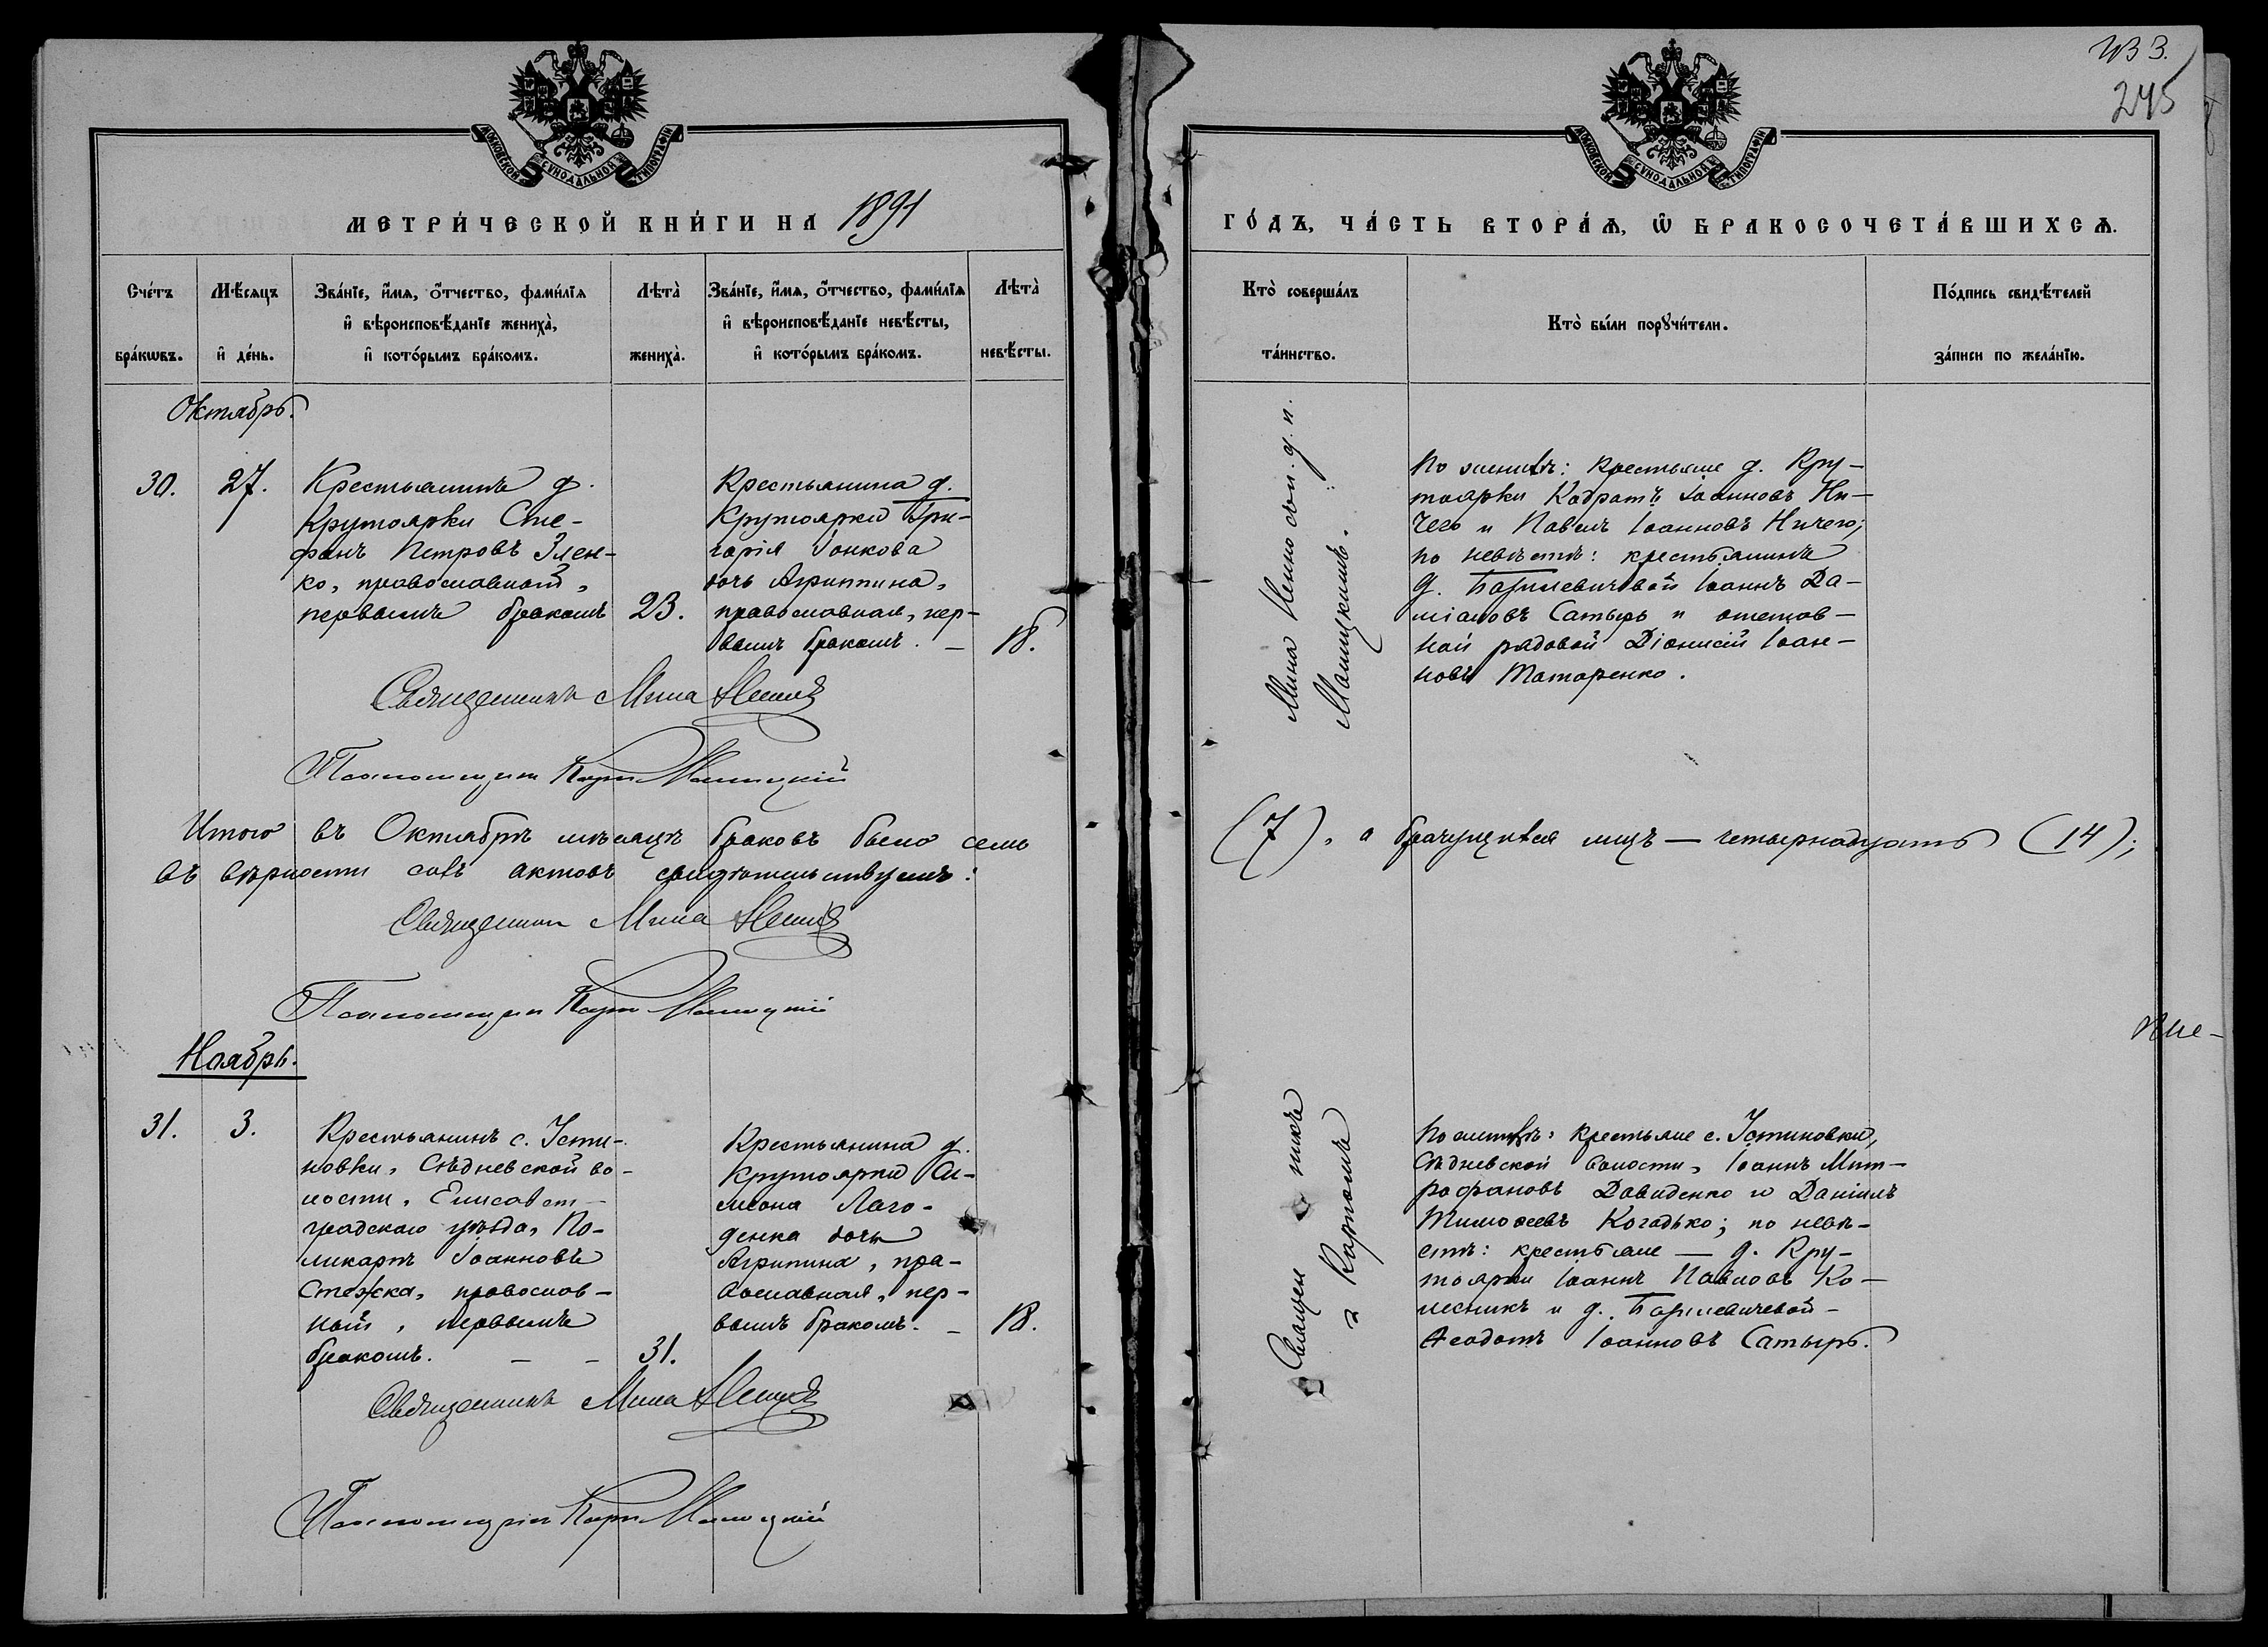 233.
245
МОСКОВСКОЙ СѴНОДАЛЬНОЙ ТИПОГРАФІИ
МОСКОВСКОЙ СѴНОДАЛЬНОЙ ТИПОГРАФІИ
МЕТРИ́ЧЕСКОЙ КНИ́ГИ НА 1891
ГО́ДЪ, ЧА́СТЬ ВТОРА́Ѧ, Ѡ҆ БРАКОСОЧЕТА́ВШИХСѦ.
Сче́тъ бра́кѡвъ.
Мѣ́сяцъ и҆ де́нь.
Зва́нїе, и҆́мѧ, ѻ҆́тчество, фами́лїѧ
и҆ вѣроисповѣ́данїе жениха̀,
и҆ кото́рымъ бра́комъ.
Лѣта̀ жениха̀.
Зва́нїе, и҆́мѧ, ѻ҆́тчество, фами́лїѧ
и҆ вѣроисповѣ́данїе невѣ́сты,
и҆ кото́рымъ бра́комъ.
Лѣта̀ невѣ́сты.
Кто̀ соверша́лъ та́инство.
Кто̀ бы́ли порꙋчи́тели.
По́дпись свидѣ́телей за́писи по жела́нїю.
Октябрь.
30.
27.
Крестьянинъ д.
Крутоярки Сте-
фанъ Петровъ Злен-
ко, православный,
первымъ бракомъ
23.
Крестьянина д.
Крутоярки Гри-
горія Іонкова
дочь Агриппина,
православная, пер-
вымъ бракомъ. –
18.
Мина
Малицкимъ.
По женихѣ: крестьяне д. Кру-
тоярки Кодратъ Іоанновъ Ни-
чего и Павелъ Іоанновъ Ничего;
по невѣстѣ: крестьянинъ
д. Бармевичевой Іоаннъ Да-
міановъ Сатырь и отстав-
ной рядовой Діонисій Іоан-
новъ Татаренко.
Священникъ Мина
Псаломщикъ Карпъ Малицкій
Итого въ Октябрѣ мѣсяцѣ браковъ было семь
(7), а брачущихся лицъ — четырнадцать (14);
въ вѣрности сихъ актовъ свидѣтельствуемъ:
Священникъ Мина
Псаломщикъ Карпъ Малицкій
Ноябрь.
31.
3.
Крестьянинъ с. Усти-
новки, Сѣдневской во-
лости, Елисавет-
градскаго уѣзда, По-
ликарпъ Іоанновъ
Стежка, православ-
ный, первымъ
бракомъ. – –
31.
Крестьянина д.
Крутоярки Си-
меона Лаго-
денка дочь
Агрипина, пра-
вославная, пер-
вымъ бракомъ. –
18.
Карпомъ
По женихѣ: крестьяне с. Устиновки,
Сѣдневской волости, Іоаннъ Мит-
рофановъ Давиденко и Даніилъ
Тимоѳеевъ Когадько; по невѣ-
стѣ: крестьяне — д. Кру-
тоярки Іоаннъ Павловъ Ко-
лесникъ и д. Бармевичевой –
Ѳеодотъ Іоанновъ Сатырь.
Священникъ Мина
Псаломщикъ Карпъ Малицкій